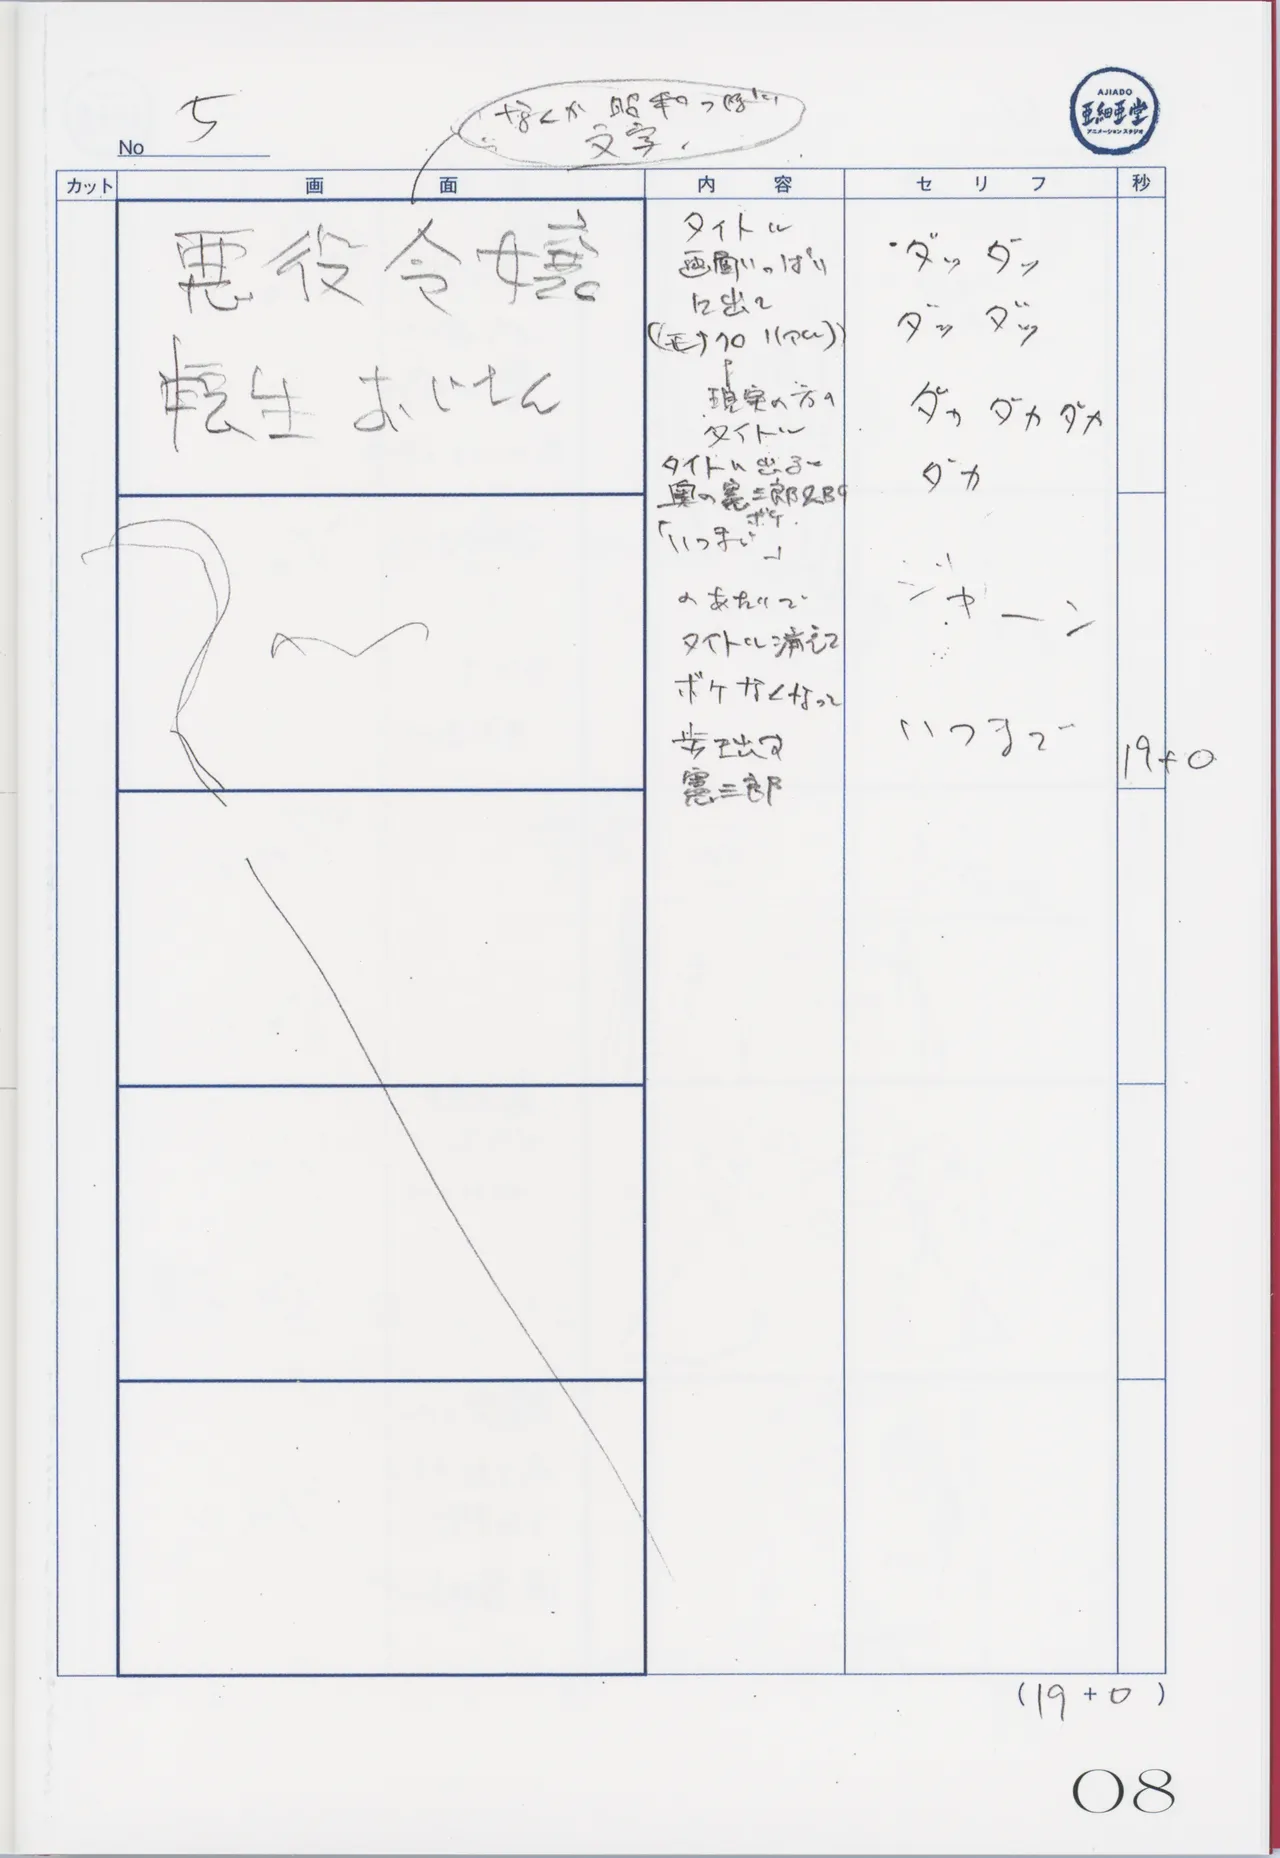 No 5
なんか昭和っぽい
文字.
AJIADO
亜細亜堂
アニメーションスタジオ
カット 画面 内容 セリフ 秒
悪役令嬢
転生おじさん
タイトル
画面いっぱい
に出て
(モノクロ
現実の方の
タイトル
タイトル出る〜
奥の憲三郎
ボケ
「いつまで」
のあたりで
タイトル消えて
ボケなくなって
歩き出す
憲三郎
ダッ ダッ
ダッ ダッ
ダカ ダカ ダカ
ダカ
ジャーン
いつまで
19+0
(19+0)
08